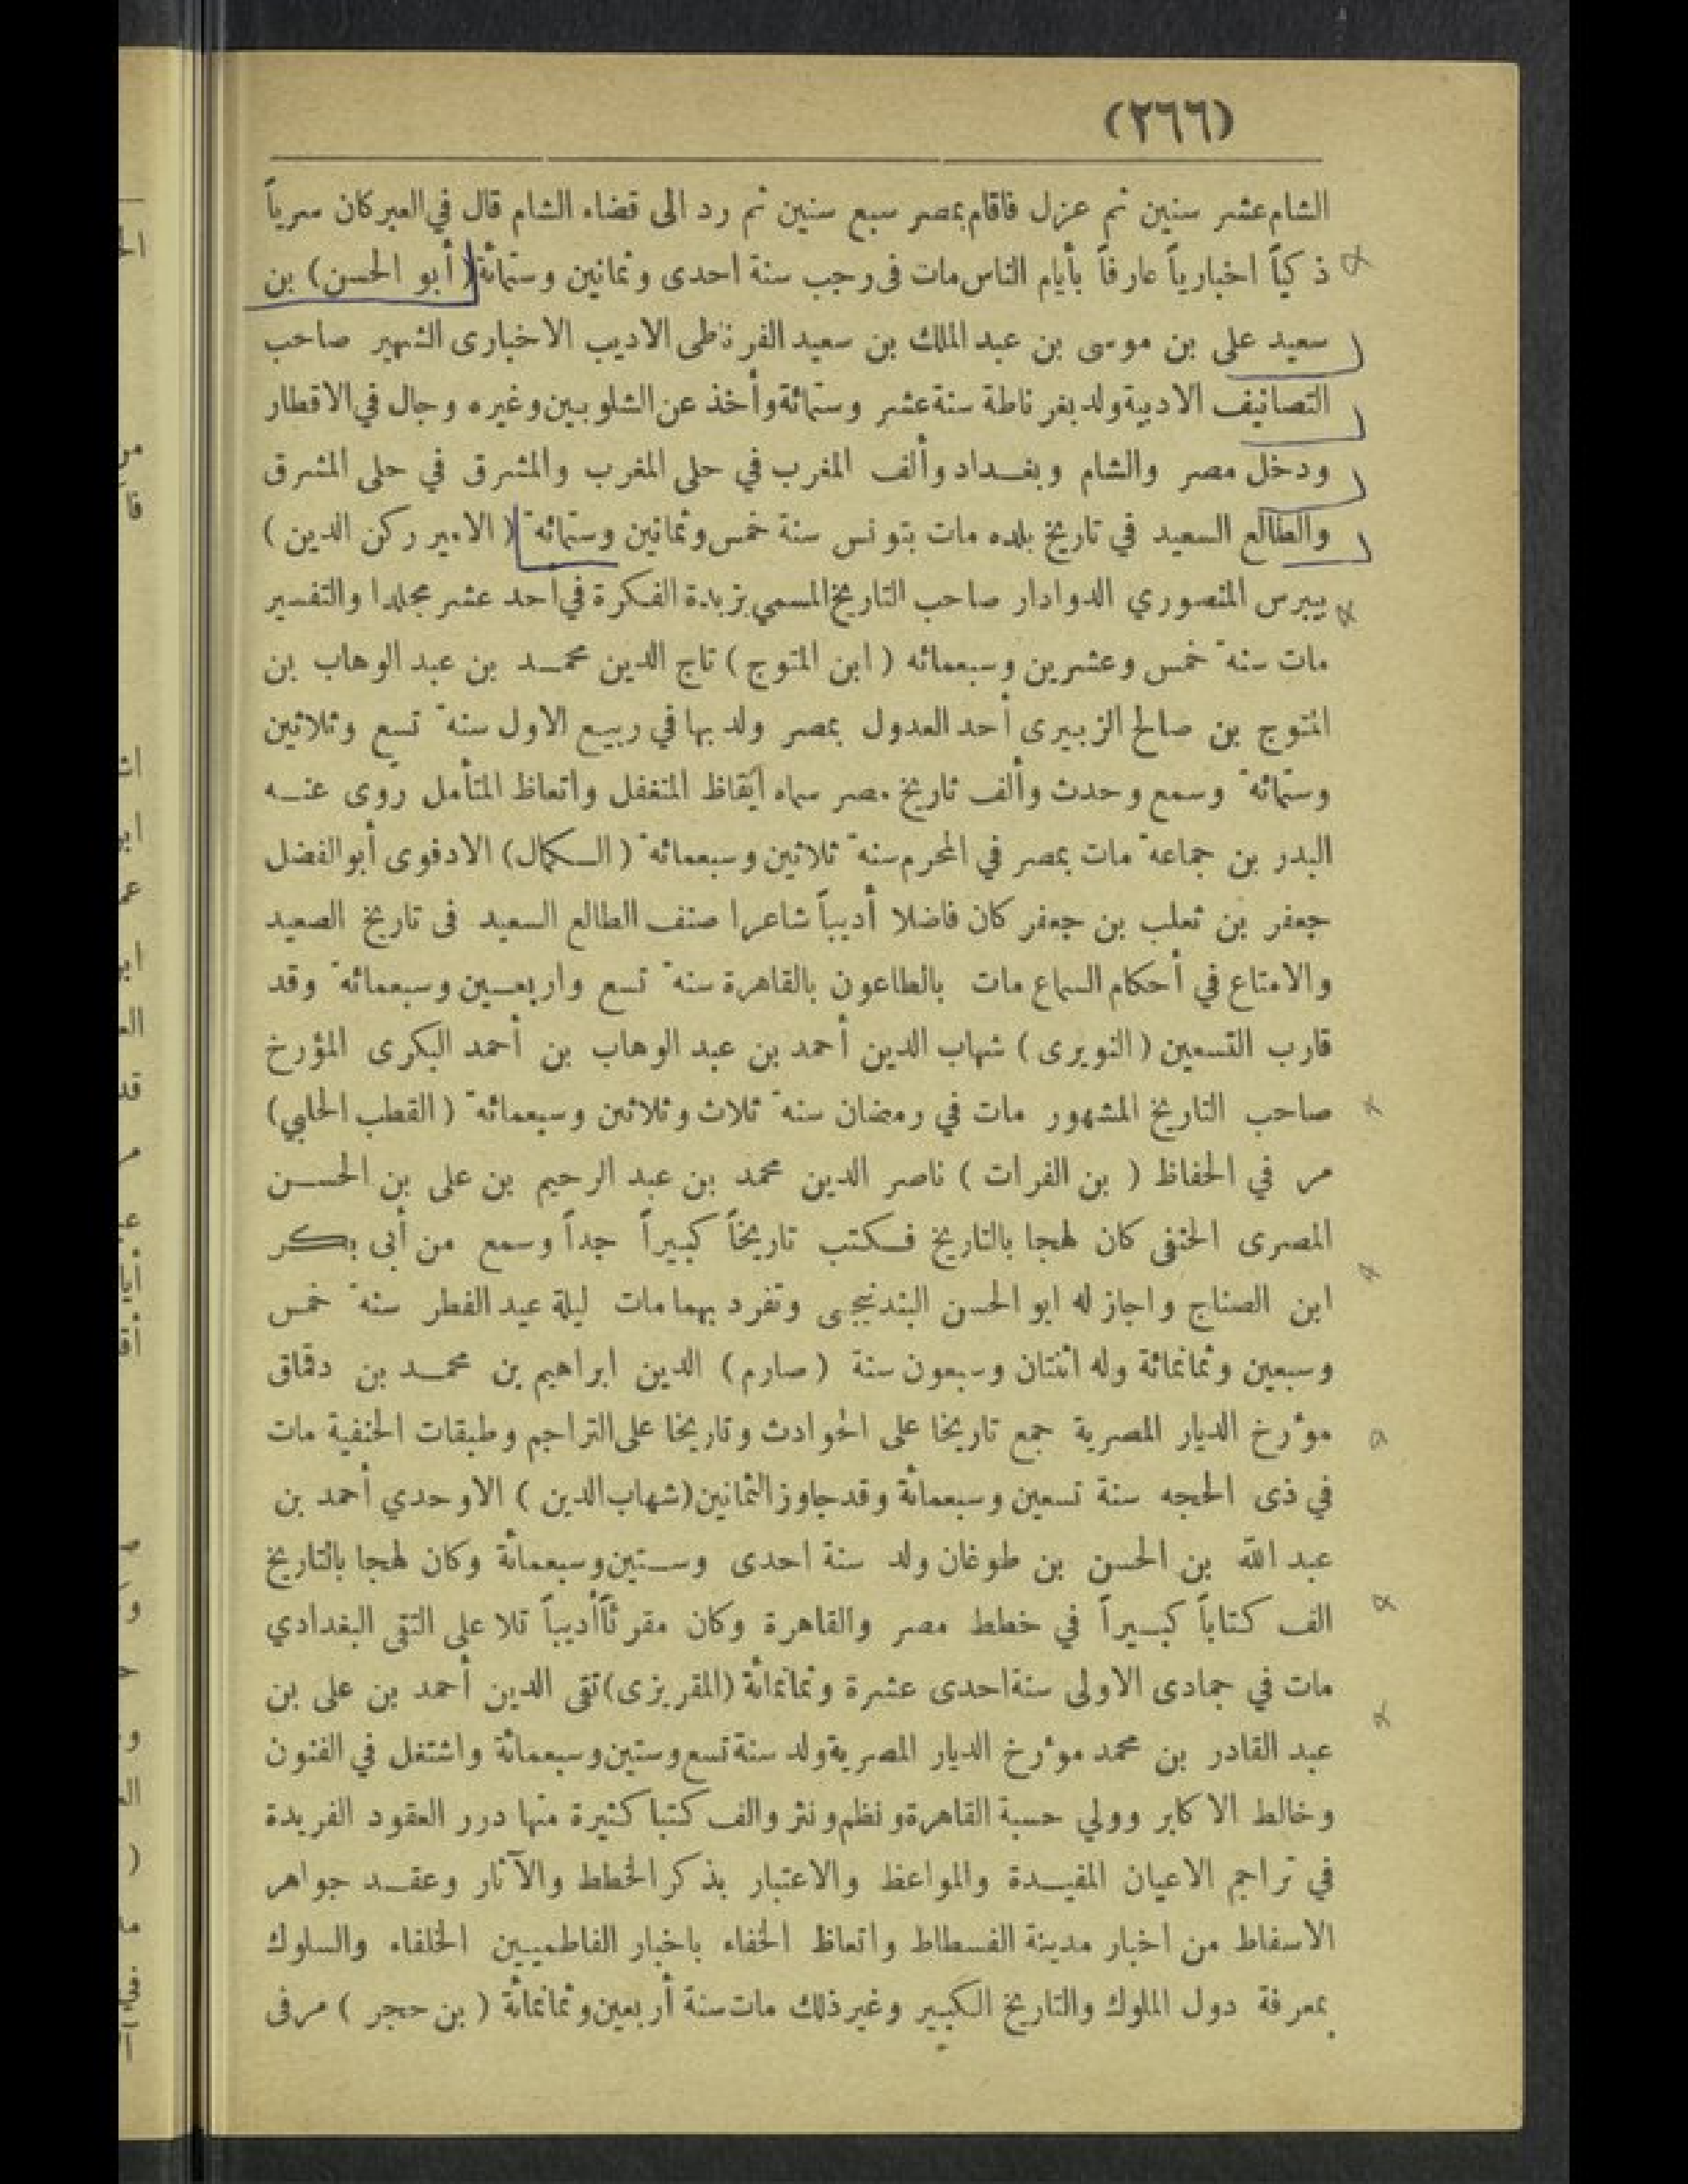 (٢٦٦)
الشام عشر سنين ثم عزل فاقام بمصر سبع سنين ثم رد الى قضاء الشام قال في العبر كان سرياً
ذكياً اخبارياً عارفاً بأيام الناس مات فى رجب سنة احدى وثمانين وستمائة (أبو الحسن) بن
سعيد على بن موسى بن عبد الملك بن سعيد الغرناطى الاديب الاخبارى الشهير صاحب
التصانيف الادبية ولد بغرناطة سنة عشر وستمائة وأخذ عن الشلوبين وغيره وجال في الاقطار
ودخل مصر والشام وبغداد وألف المغرب في حلى المغرب والمشرق في حلى المشرق
والطالع السعيد في تاريخ بلده مات بتونس سنة خمس وثمانين وستمائة (الامير ركن الدين)
بيبرس المنصوري الدوادار صاحب التاريخ المسمي بزبدة الفكرة في احد عشر مجلدا والتفسير
مات سنة خمس وعشرين وسبعمائه (ابن المتوج) تاج الدين محمد بن عبد الوهاب بن
المتوج بن صالح الزبيرى أحد العدول بمصر ولد بها في ربيع الاول سنة تسع وثلاثين
وستمائة وسمع وحدث وألف تاريخ مصر سماه ايقاظ المتغفل واتعاظ المتأمل روى عنه
البدر بن جماعة مات بمصر في المحرم سنة ثلاثين وسبعمائة (الكمال) الادفوى أبو الفضل
جعفر بن ثعلب بن جعفر كان فاضلا أديباً شاعرا صنف الطالع السعيد فى تاريخ الصعيد
والامتاع في أحكام السماع مات بالطاعون بالقاهرة سنة تسع واربعين وسبعمائة وقد
قارب التسعين (النويرى) شهاب الدين أحمد بن عبد الوهاب بن أحمد البكرى المؤرخ
صاحب التاريخ المشهور مات في رمضان سنة ثلاث وثلاثين وسبعمائة (القطب الحلبي)
مر في الحفاظ (بن الفرات) ناصر الدين محمد بن عبد الرحيم بن على بن الحسن
المصرى الحنفى كان لهجا بالتاريخ فكتب تاريخاً كبيراً جداً وسمع من أبى بكر
ابن الصناج واجاز له ابو الحسن البندنيجى وتفرد بهما مات ليلة عيد الفطر سنة خمس
وسبعين وثمانمائة وله اثنتان وسبعون سنة (صارم) الدين ابراهيم بن محمد بن دقماق
مؤرخ الديار المصرية جمع تاريخا على الحوادث وتاريخا على التراجم وطبقات الحنفية مات
في ذى الحجه سنة تسعين وسبعمائة وقد جاوز الثمانين (شهاب الدين) الاوحدي أحمد بن
عبد الله بن الحسن بن طوغان ولد سنة احدى وستين وسبعمائة وكان لهجا بالتاريخ
الف كتاباً كبيراً في خطط مصر والقاهرة وكان مقرئاً أديباً تلا على التقى البغدادي
مات في جمادى الاولى سنة احدى عشرة وثمانمائة (المقريزى) تقى الدين أحمد بن على بن
عبد القادر بن محمد مؤرخ الديار المصرية ولد سنة تسع وستين وسبعمائة واشتغل في الفنون
وخالط الاكابر وولي حسبة القاهرة ونظم ونثر والف كتبا كثيرة منها درر العقود الفريدة
في تراجم الاعيان المفيدة والمواعظ والاعتبار بذكر الخطط والآثار وعقد جواهر
الاسفاط من اخبار مدينة الفسطاط واتعاظ الخفاء باخبار الفاطميين الخلفاء والسلوك
بمعرفة دول الملوك والتاريخ الكبير وغير ذلك مات سنة أربعين وثمانمائة (بن حجر) مر فى